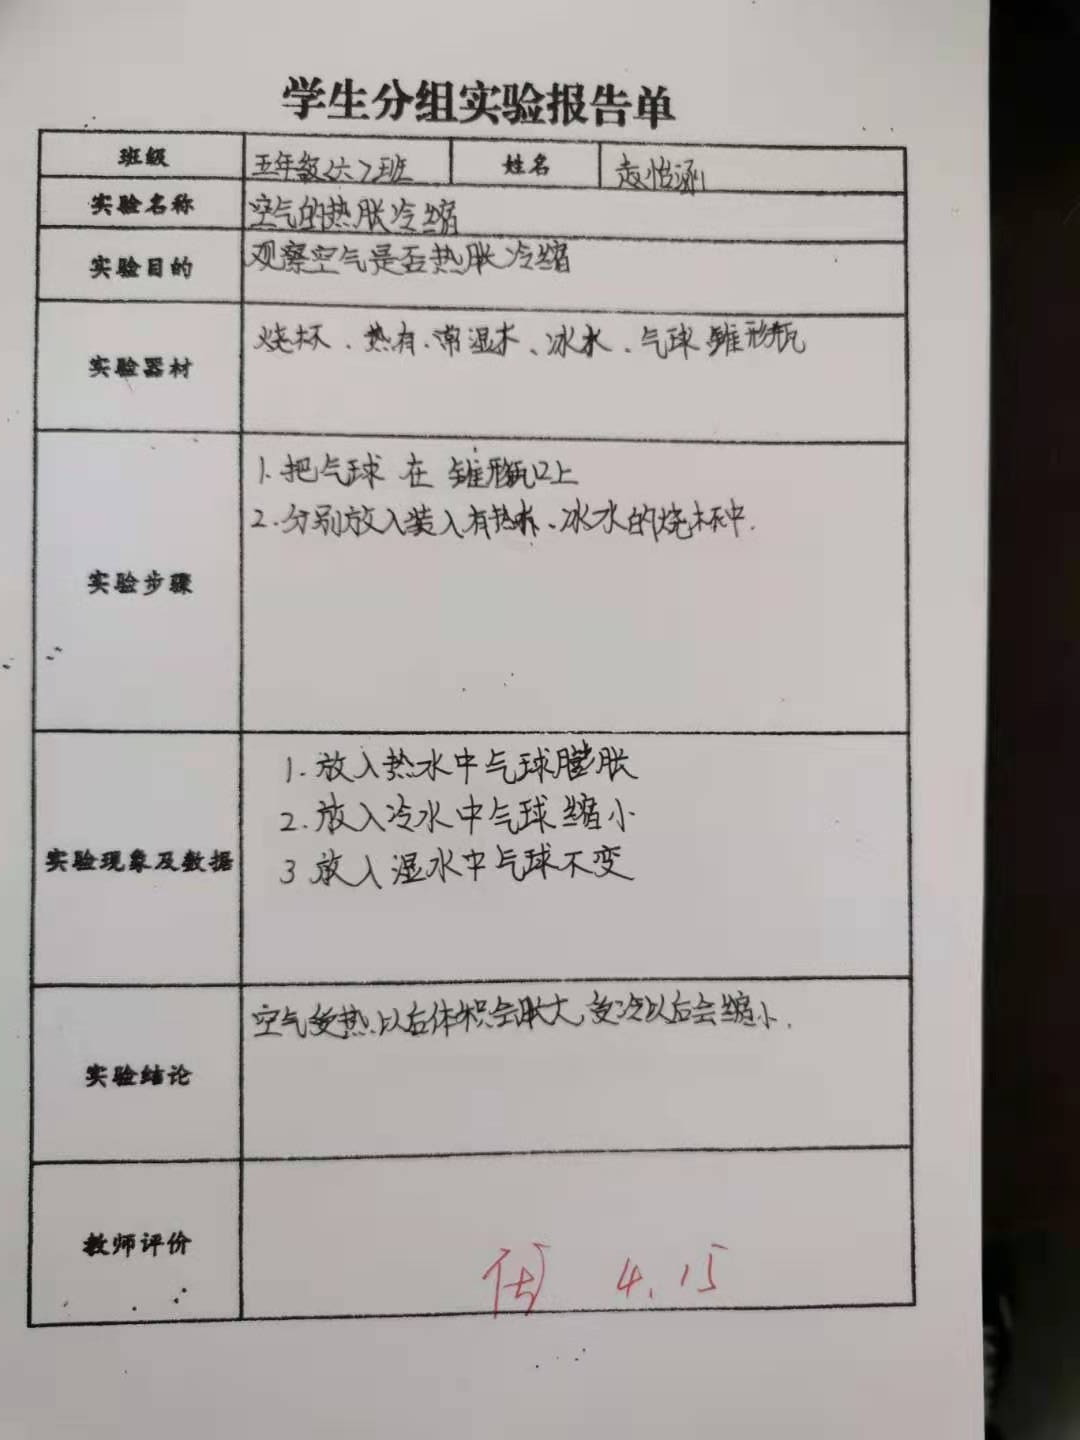 学生分组实验报告单
班级 五年级<六>班 姓名 赵怡涵
实验名称 空气的热胀冷缩
实验目的 观察空气是否热胀冷缩
实验器材 烧杯、热有、常湿木、冰水、气球 锥形瓶
1.把气球 在 锥形瓶口上
2.分别放入装入有热水、冰水的烧杯中.
实验步骤
1.放入热水中气球膨胀
2.放入冷水中气球缩小
实验现象及数据 3 放入湿水中气球不变
空气受热以后体积会胀大,变冷以后会缩小.
实验结论
教师评价
4.15